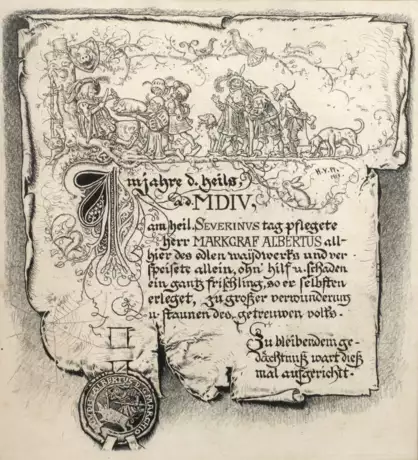 Im jahre d. heils,
a.d. MDIV,
am heil. SEVERINUS tag pflegete
herr MARKGRAF ALBERTUS all-
hier des edlen waydwerks und ver-
speisete allein, ohn' hilf u. schaden
ein gantz frischling, so er selbsten
erleget, zu großer verwunderung
u. staunen des getreuwen volks.
Zu bleibendem ge-
dächtnuß wart dieß
mal aufgericht.
H.v.M.
ALBERTUS